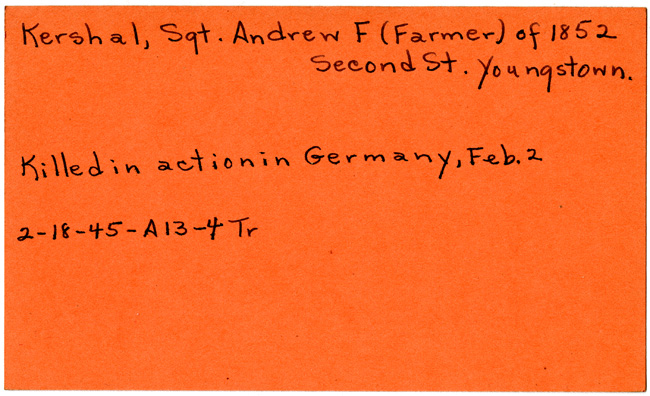 Kershal, Sgt. Andrew F (Farmer) of 1852
Second St. Youngstown.
Killed in action in Germany, Feb. 2
2-18-45-A13-4 Tr